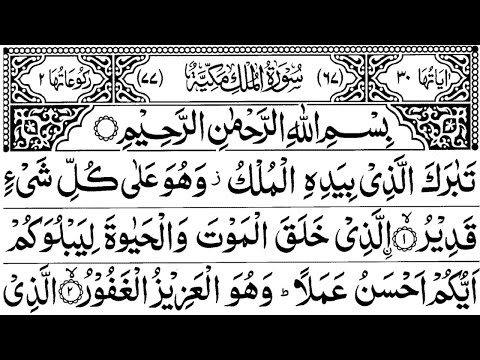 اٰيَاتُهَا ٣٠ (٦٧) سُوْرَةُ الْمُلْكِ مَكِّيَّةٌ (٧٧) رُكُوْعَاتُهَا ٢
بِسْمِ اللّٰهِ الرَّحْمٰنِ الرَّحِيْمِ
تَبٰرَكَ الَّذِىْ بِيَدِهِ الْمُلْكُ ز وَهُوَ عَلٰى كُلِّ شَىْءٍ
قَدِيْرُۙ ۝١ اۨلَّذِىْ خَلَقَ الْمَوْتَ وَالْحَيٰوةَ لِيَبْلُوَكُمْ
اَيُّكُمْ اَحْسَنُ عَمَلًا ؕ وَهُوَ الْعَزِيْزُ الْغَفُوْرُۙ ۝٢ الَّذِىْ